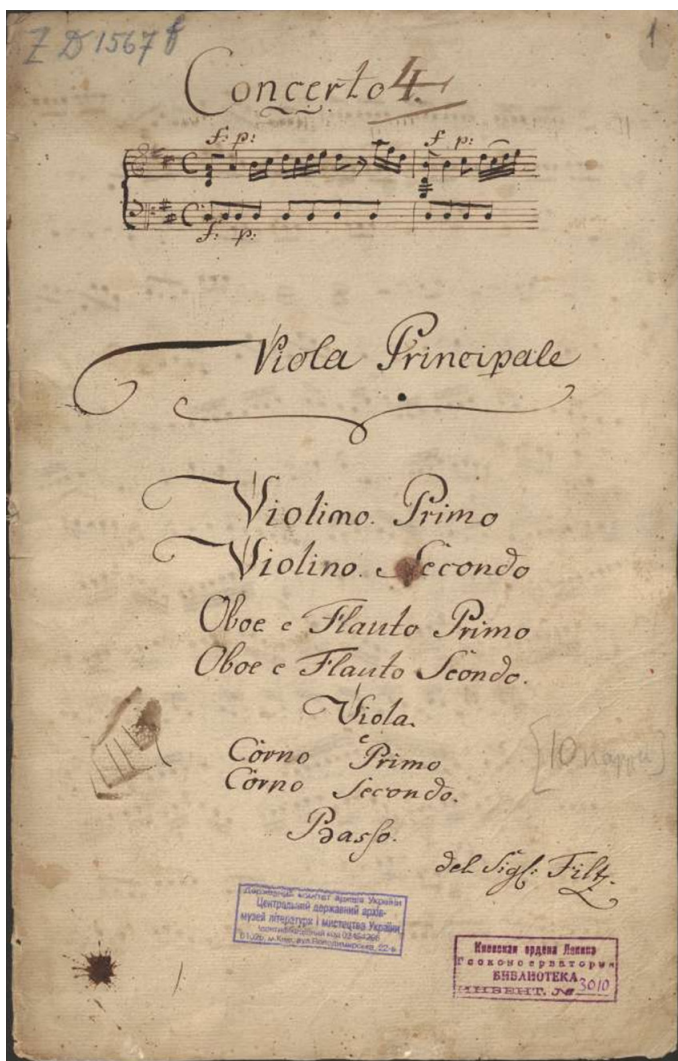 Z D 1567 f
1
Concerto 4.
f: p: f p:
f: p:
Viola Principale
Violino. Primo
Violino. Secondo
Oboe e Flauto Primo
Oboe e Flauto Scondo.
Viola.
Corno Primo
Corno Secondo.
Basso.
del Sigl: Filtz.
Державний комітет архівів України
Центральний державний архів-
музей літератури і мистецтва України
Киевская ордена Ленина
Госконсерватория
БИБЛИОТЕКА
ИНВЕНТ. № 3010